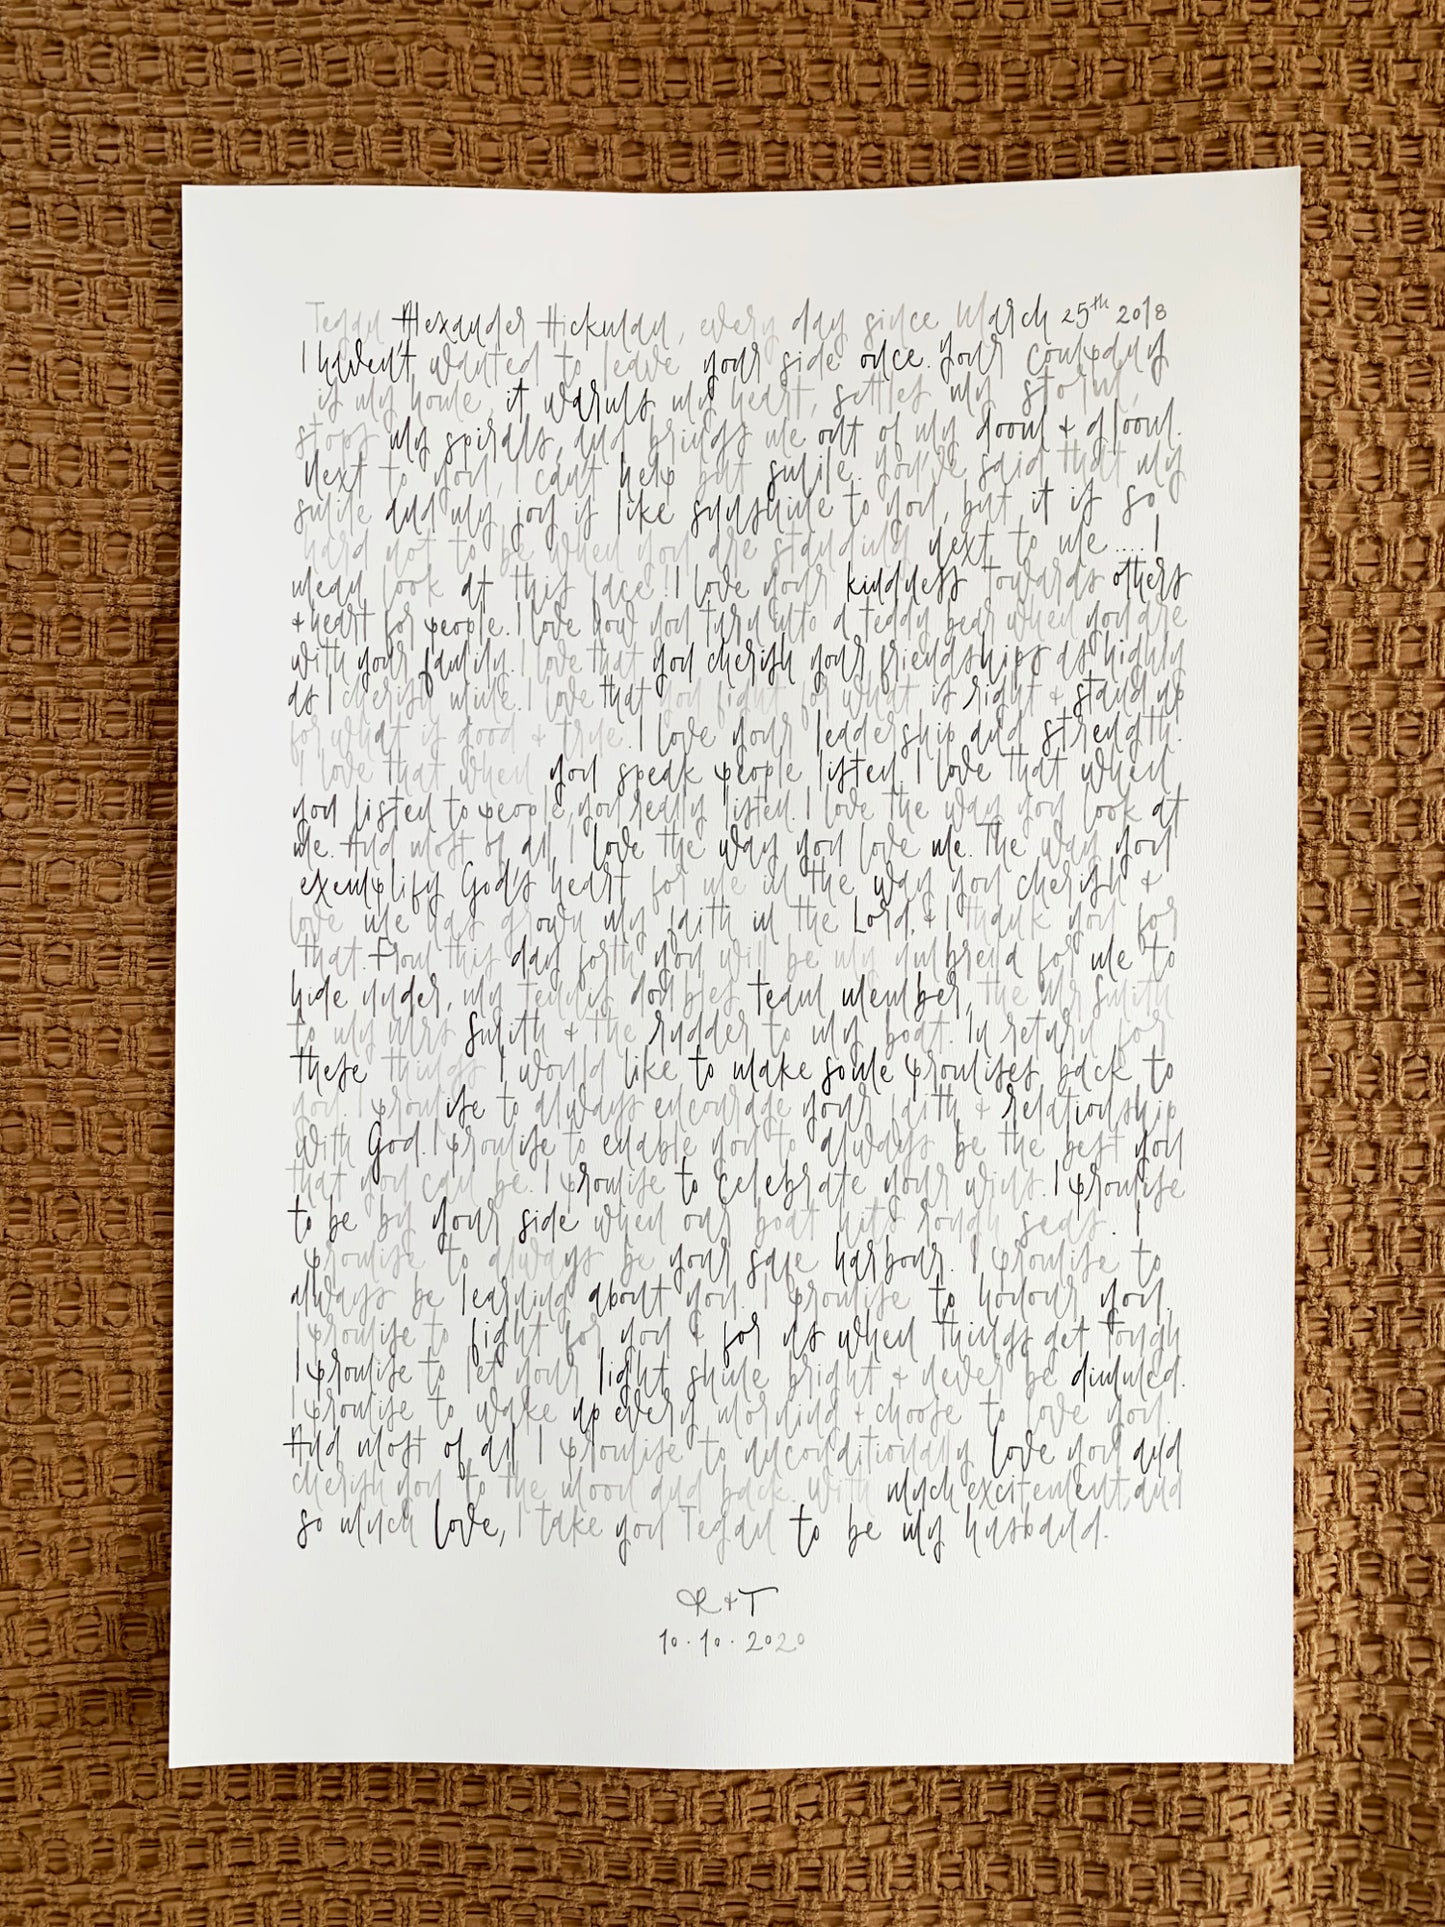 Tegan Alexander Hickman, every day since March 25th 2018
I haven't wanted to leave your side once. Your company
is my home, it warms my heart, settles my storm,
stops my spirals, and brings me out of my doom & gloom.
Next to you, I can't help but smile. You've said that my
smile and my joy is like sunshine to you, but it is so
hard not to be when you are standing next to me .... I
mean look at this face! I love your kindness towards others
& heart for people. I love how you turn into a teddy bear when you are
with your family. I love that you cherish your friendships as highly
as I cherish mine. I love that you fight for what is right & stand up
for what is good & true. I love your leadership and strength.
I love that when you speak people listen. I love that when
you listen to people, you really listen. I love the way you look at
me. And most of all, I love the way you love me. The way you
exemplify God's heart for me in the way you cherish &
love me has grown my faith in the Lord, & I thank you for
that. From this day forth you will be my umbrella for me to
hide under, my tennis doubles team member, the Mr Smith
to my Mrs Smith & the rudder to my boat. In return for
these things I would like to make some promises back to
you. I promise to always encourage your faith & relationship
with God. I promise to enable you to always be the best you
that you can be. I promise to celebrate your wins. I promise
to be by your side when our boat hits rough seas. I
promise to always be your safe harbour. I promise to
always be learning about you. I promise to honour you.
I promise to fight for you & for us when things get tough
I promise to let your light shine bright & never be dimmed.
I promise to wake up every morning & choose to love you.
And most of all I promise to unconditionally love you and
cherish you to the moon and back. With much excitement, and
so much love, I take you Tegan to be my husband.
R & T
10.10.2020